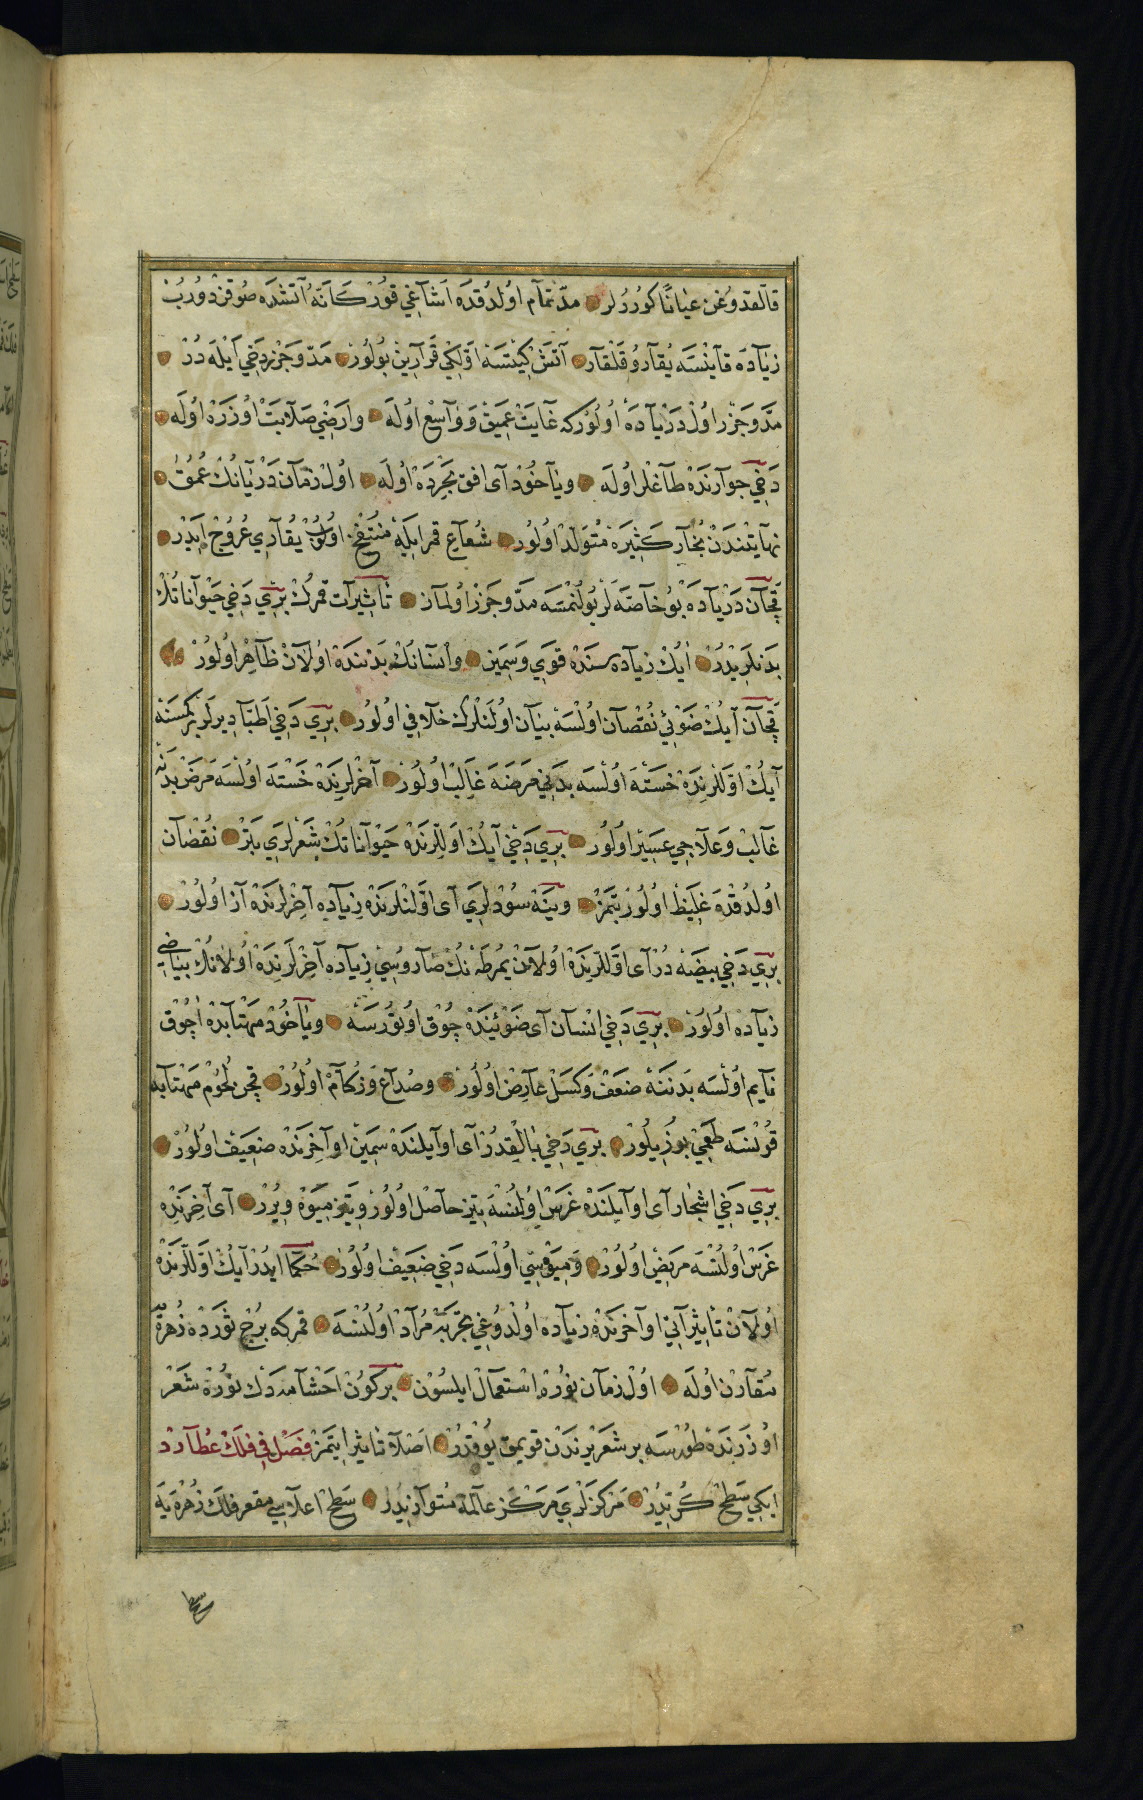 قالقدوغن عيانا كوررلر مد تمام اولدقده اشاغي قور كانه آتشده صو قزدورب
زياده قاينسه يقارو قلقار آتش كيتسه اولكي قرارين بولور مد وجزر دخي ايله در
مد وجزر اول درياده اولور كه غايت عميق و واسع اوله وارضي صلابت اوزره اوله
دخي جوارنده طاغلر اوله ويا خود آي افق بحرده اوله اول زمان دريانك عمق
نهايتندن بخار كثيره متولد اولور شعاع قمر ايله منتفخ اولوب يقاري عروج ايدر
قچان درياده بو خاصه لر بولنمسه مد وجزر اولماز تأثيرات قمرك بري دخي حيواناتك
بدنلريدر ايك زياده سنده قوي وسمين وانسانك بدننده اولان ظاهر اولور
قچان آيك ضوئي نقصان اولسه بيان اولنلرك خلافي اولور بري دخي اطبا ديرلر بر كمسنه
آيك اوللرنده خسته اولسه بدني مرضه غالب اولور آخرلرنده خسته اولسه مرض بدنه
غالب وعلاجي عسير اولور بري دخي آيك اوللرنده حيواناتك شعرلري بتر نقصان
اولدقده غليظ اولور بتمز وينه سودلري آي اوللرنده زياده آخرلرنده از اولور
بري دخي بيضه در آي اوللرنده اولان يمرطه نك صاروسي زياده آخرلرنده اولانك بياضي
زياده اولور بري دخي انسان آي ضوئينده چوق اوتورسه ويا خود مهتابده اچوق
نايم اولسه بدننه ضعف وكسل عارض اولور وصداع وزكام اولور قچن لحوم مهتابه
قونسه طعمي بوزيلور بري دخي بالقدر آي اوايلنده سمين اواخرنده ضعيف اولور
بري دخي اشجار آي اوايلنده غرس اولنسه تيز حاصل اولور وتيز ميوه ويرر آي آخرنده
غرس اولنسه مريض اولور وميوه سي اولسه دخي ضعيف اولور حكما ايدر آيك اوللرنده
اولان تأثيراتي اواخرنده زياده اولدوغي تجربه مراد اولنسه قمر كه برج ثورده زهره يه
مقارن اوله اول زمان نوره استعمال ايلسون بر كون اخشامه دك نوره شعر
اوزرنده طورسه بر شعر يرندن قويمق يوقدر اصلا تاثير ايتمز فصل في فلك عطارد
ايكي سطح كرتيدر مركزلري مركز عالمه متوازيدر سطح اعلاسي مقعر فلك زهره يه